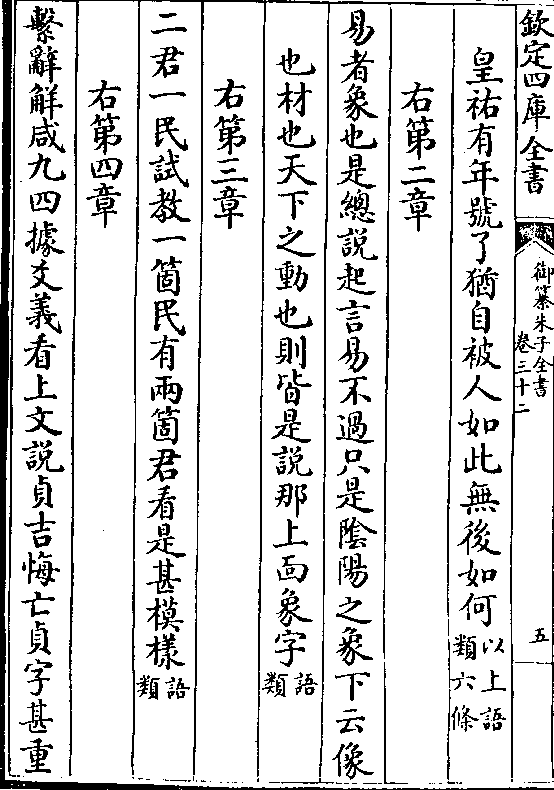 欽定四庫全書
御纂朱子全書
卷三十二
五
皇祐有年號了猶自被人如此無後如何
以上語
類六條
右第二章
易者象也是總說起言易不過只是陰陽之象下云像
也材也天下之動也則皆是說那上面象字
語
類
右第三章
二君一民試教一箇民有兩箇君看是甚模樣
語
類
右第四章
繫辭解咸九四據爻義看上文說貞吉悔亡貞字甚重